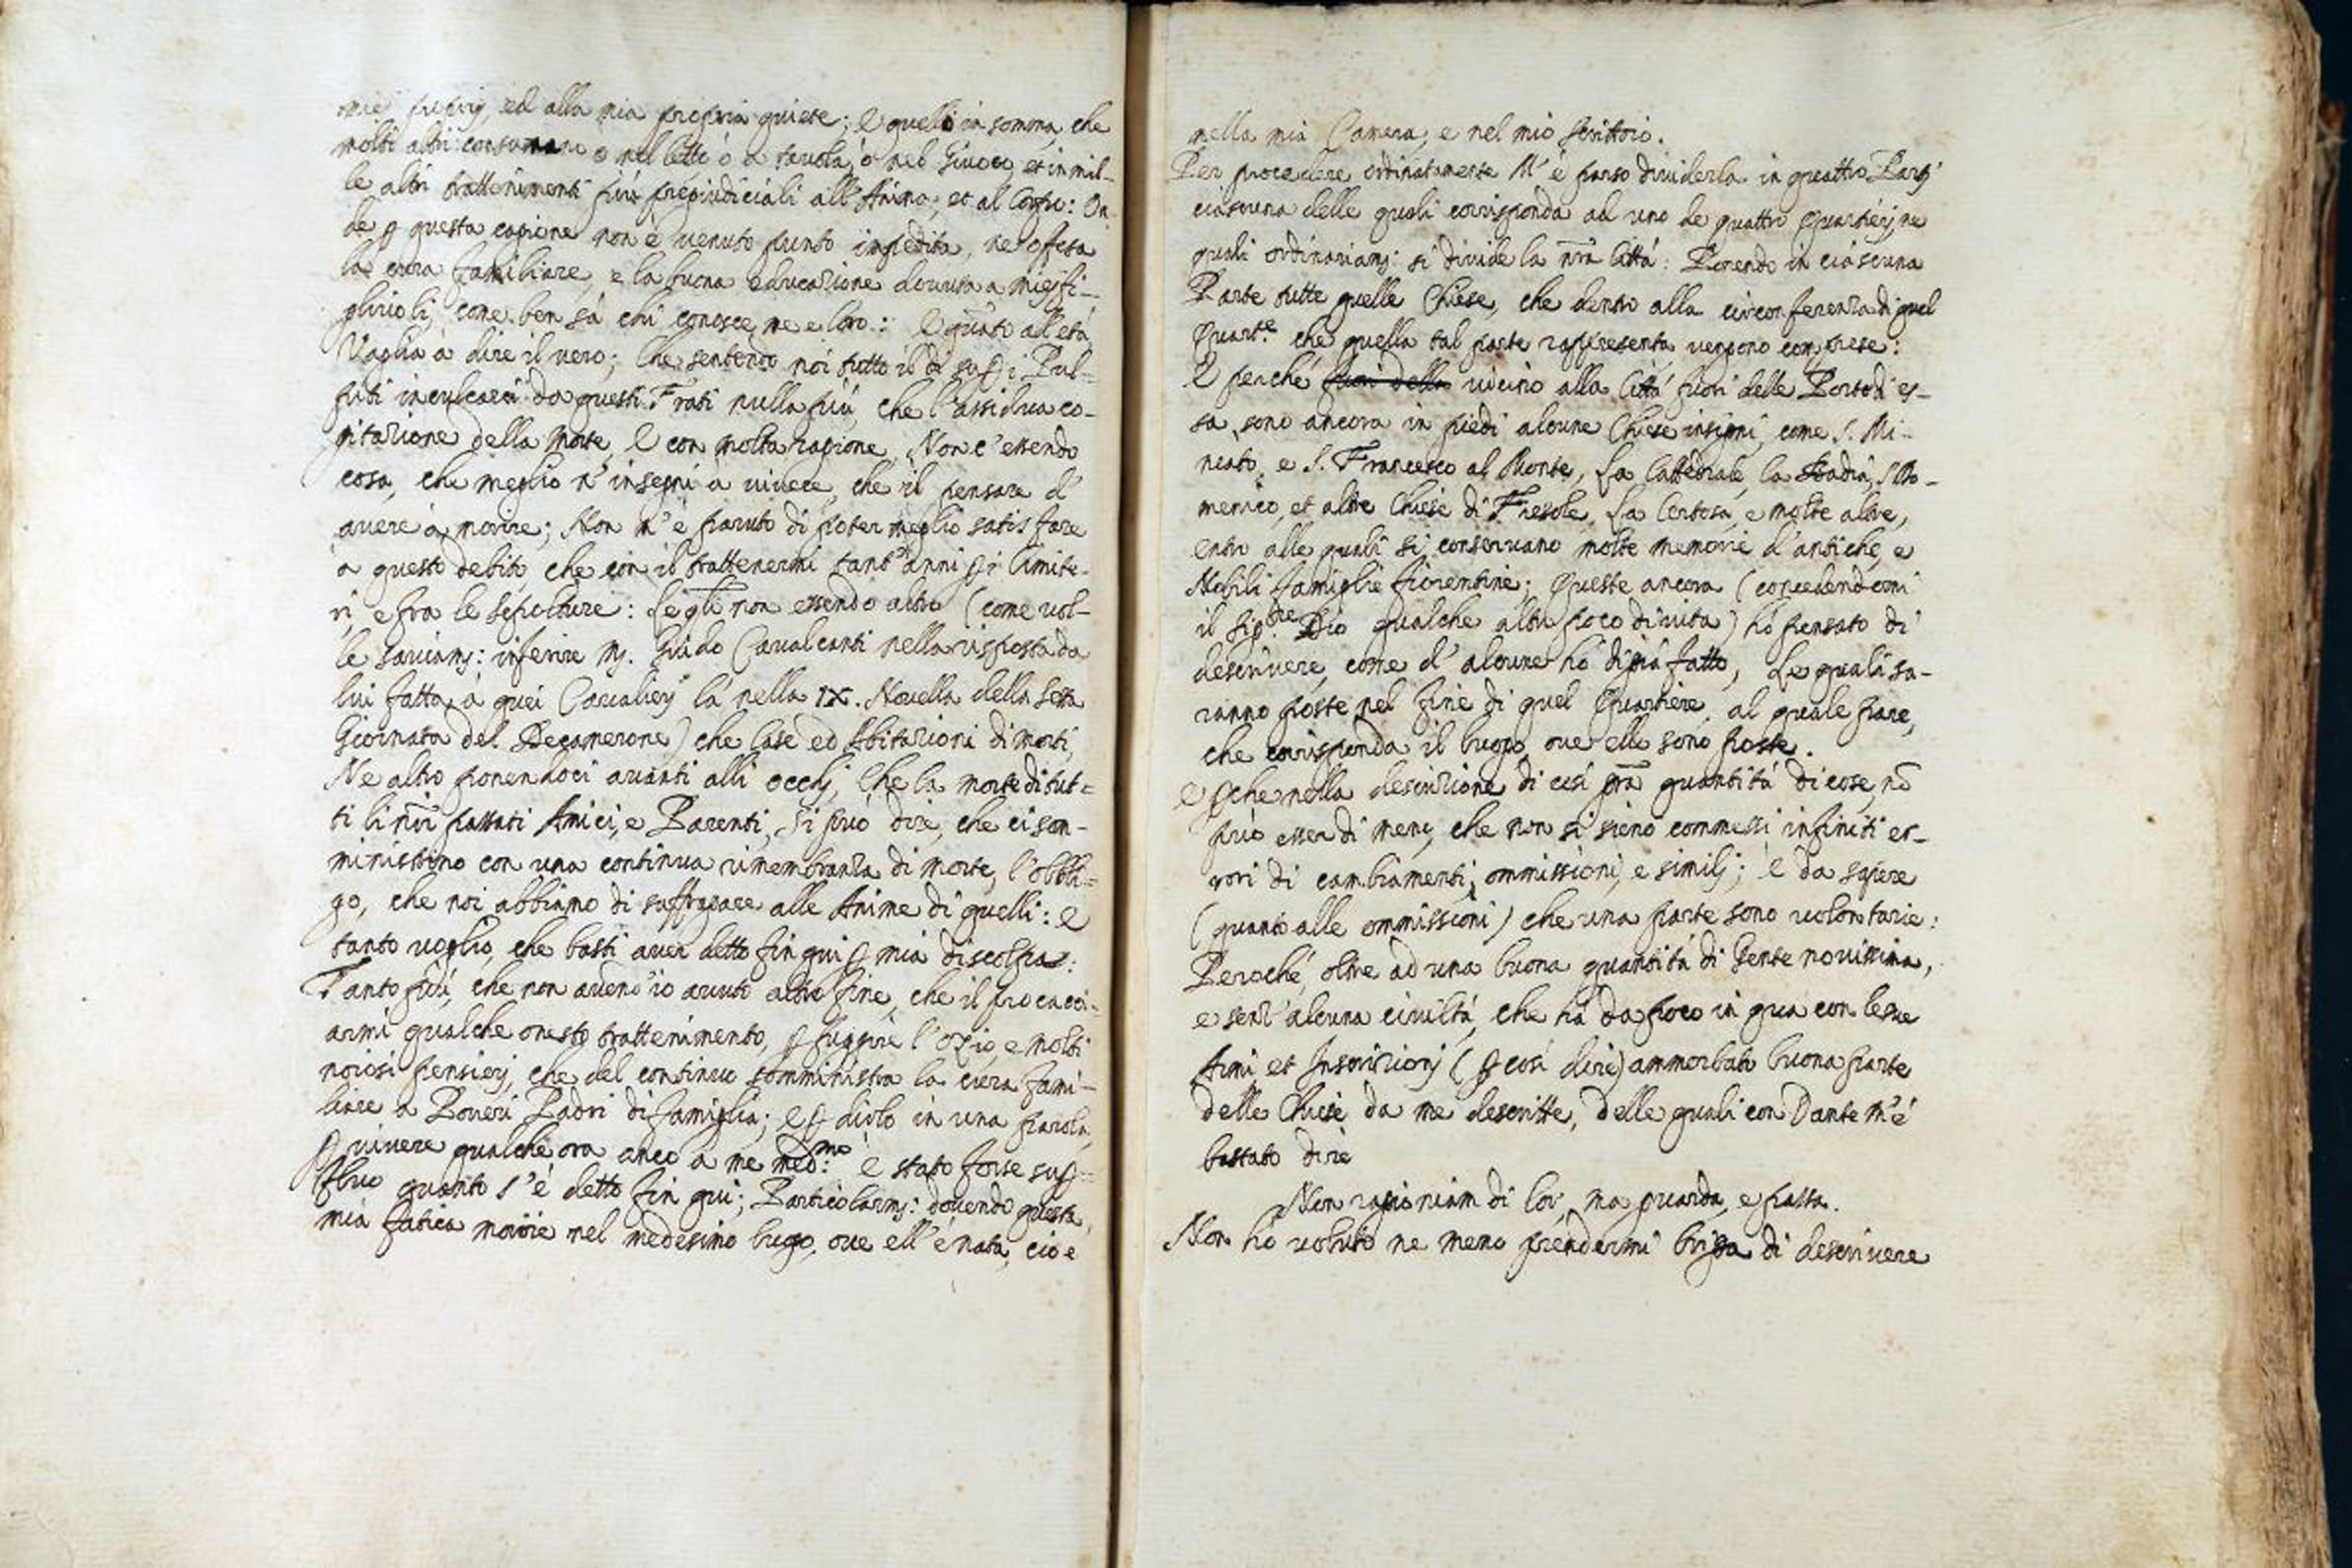 miei proprij, ed alla mia propria quiete; E quelli in somma, che
molti altri consumano o nel letto ò a tavola, ò nel Giuoco, et in mil-
le altri trattenimenti più pregiudiciali all'Animo, et al Corpo: On-
de ꝑ questa cagione non è venuto punto impedita, ne offesa
la cura familiare, e la buona educazione dovuta a miej fi-
gliuoli, come ben sà chi conosce me e loro: E quãto all'età
Vaglia à dire il vero; Che sentendo noi tutto il dì sù ꝑ i Pul-
piti inculcarci da questi Frati nulla più, che l'assidua co-
gitazione della morte, E con molta ragione, Non c'essendo
cosa, che meglio n'insegni à vivere, che il pensare d'
avere à morire; Non m'è paruto di poter meglio satisfare
à questo debito che con il trattenermi tant'anni ꝑ i Cimite-
ri, e fra le sepolture: Le qli non essendo altro (come vol-
le saviamẽ: inferire Mʃ. Guido Cavalcanti nella risposta da
lui fatta à quei Cavalierj là nella IX. Novella della sesta
Giornata del Decamerone) che Case ed Abitazioni di morti,
Ne altro ponendoci avanti alli occhj, Che la morte di tut-
ti li nr̃i passati Amici, e Parenti, Si può dire, che ci som-
ministrino con una continua rimembranza di morte, l'obbli-
go, che noi abbiamo di suffragare alle Anime di quelli: E
tanto voglio, che basti aver detto fin qui ꝑ mia discolpa:
Tanto più, che non avend'io avuto altro fine, che il procacci-
armi qualche onesto trattenimento, ꝑ fuggire l'ozio, e molti
noiosi pensierj, che del continuo somministra la cura fami-
liare a Poveri Padri di famiglia; e ꝑ dirlo in una parola,
ꝑ vivere qualche ora anco a me med:mo è stato forse suꝑ-
fluo quanto s'é detto fin qui; Particolarmẽ: dovendo questa
mia fatica morire nel medesimo luogo, ove ell'é nata, cioe
nella mia Camera, e nel mio scrittoio.
Per procedere ordinatamente M'è parso dividerla in quattro Partj
ciascuna delle quali corrisponda ad uno de quattro Quartierj, ne
quali ordinariamẽ: si divide la nr̃a Città: Ponendo in ciascuna
Parte tutte quelle Chiese, che dentro alla circonferenza di quel
Quart.e che quella tal parte rappresenta vengono comprese:
E perché fuori della vicino alla Città fuori delle Porte di es-
sa, sono ancora in piedi alcune Chiese insigni, come S. Mi-
niato, e S. Francesco al Monte, La Cattedrale, la Badia, S. Do-
menico, et altre Chiese di Fiesole, La Certosa, e molte altre,
entro alle quali si conservano molte memorie d'antiche, e
Nobili famiglie fiorentine; Queste ancora (concedendomi
il Sig.re Dio qualche altro poco di vita) hò pensato di
descrivere, come d'alcune hò di già fatto, Le quali sa-
ranno poste nel fine di quel Quartiere, al quale pare,
che corrisponda il luogo, ove elle sono poste.
e ꝑche nella descrizione di così grã quantità di cose, nõ
può esser di meno, che non si sieno commessi infiniti er-
rori di cambiamenti, ommissioni, e similj; è da sapere
(quanto alle ommissioni) che una parte sono volontarie:
Peroché, oltre ad una buona quantità di Gente novissima,
e senz'alcuna civiltà, che hà da poco in qua con le sue
Armi et Inscrizionj (ꝑ così dire) ammorbato buona parte
delle Chiese da me descritte, delle quali con Dante m'é
bastato dire
Non ragioniam di lor, ma guarda, e passa.
Non hò voluto ne meno prendermi briga di descrivere